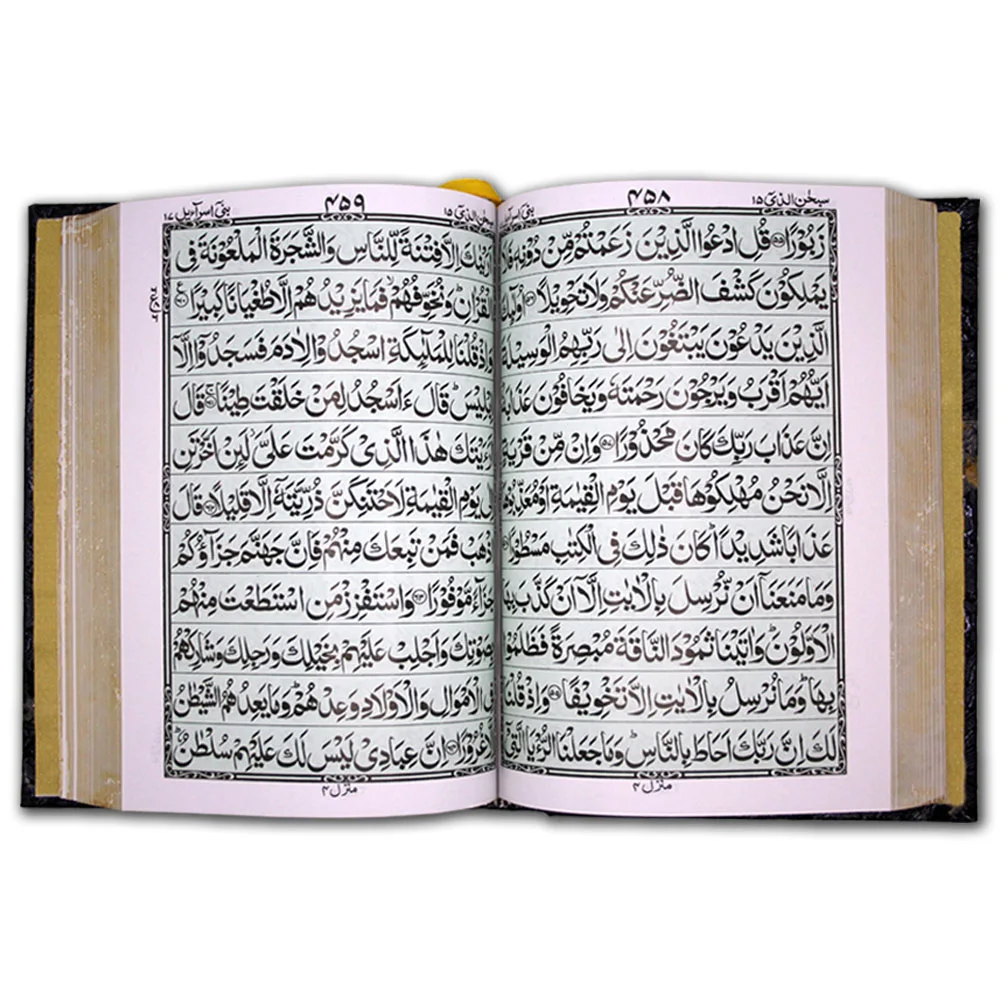 سبحٰن الذیٓ ۱۵ ۴۵۸
زَبُوْرًا ۝۵۵ قُلِ ادْعُوا الَّذِیْنَ زَعَمْتُمْ مِّنْ دُوْنِهٖ
یَمْلِكُوْنَ كَشْفَ الضُّرِّ عَنْكُمْ وَلَا تَحْوِیْلًا ۝۵۶
الَّذِیْنَ یَدْعُوْنَ یَبْتَغُوْنَ اِلٰی رَبِّهِمُ الْوَسِیْلَةَ
اَیُّهُمْ اَقْرَبُ وَیَرْجُوْنَ رَحْمَتَهٗ وَیَخَافُوْنَ
اِنَّ عَذَابَ رَبِّكَ كَانَ مَحْذُوْرًا ۝۵۷ وَاِنْ مِّنْ قَرْیَةٍ
اِلَّا نَحْنُ مُهْلِكُوْهَا قَبْلَ یَوْمِ الْقِیٰمَةِ اَوْ
عَذَابًا شَدِیْدًاؕ كَانَ ذٰلِكَ فِی الْكِتٰبِ مَسْطُوْرًا
وَمَا مَنَعَنَآ اَنْ نُّرْسِلَ بِالْاٰیٰتِ اِلَّآ اَنْ كَذَّبَ
الْاَوَّلُوْنَؕ وَاٰتَیْنَا ثَمُوْدَ النَّاقَةَ مُبْصِرَةً فَظَلَمُوْا
بِهَاؕ وَمَا نُرْسِلُ بِالْاٰیٰتِ اِلَّا تَخْوِیْفًا ۝۵۹ وَاِذْ قُلْنَا
لَكَ اِنَّ رَبَّكَ اَحَاطَ بِالنَّاسِؕ وَمَا جَعَلْنَا الرُّءْیَا
منزل ۴
۴۵۹ بنیٓ اسرآءیل ۱۷
اَرَیْنٰكَ اِلَّا فِتْنَةً لِّلنَّاسِ وَالشَّجَرَةَ الْمَلْعُوْنَةَ فِی
الْقُرْاٰنِؕ وَنُخَوِّفُهُمْۙ فَمَا یَزِیْدُهُمْ اِلَّا طُغْیَانًا كَبِیْرًا ۝۶۰
وَاِذْ قُلْنَا لِلْمَلٰٓئِكَةِ اسْجُدُوْا لِاٰدَمَ فَسَجَدُوْٓا اِلَّآ
اِبْلِیْسَؕ قَالَ ءَاَسْجُدُ لِمَنْ خَلَقْتَ طِیْنًا ۝۶۱ قَالَ
اَرَءَیْتَكَ هٰذَا الَّذِیْ كَرَّمْتَ عَلَیَّؗ لَئِنْ اَخَّرْتَنِ
یَوْمِ الْقِیٰمَةِ لَاَحْتَنِكَنَّ ذُرِّیَّتَهٗٓ اِلَّا قَلِیْلًا ۝۶۲ قَالَ
اذْهَبْ فَمَنْ تَبِعَكَ مِنْهُمْ فَاِنَّ جَهَنَّمَ جَزَآؤُكُمْ
جَزَآءً مَّوْفُوْرًا ۝۶۳ وَاسْتَفْزِزْ مَنِ اسْتَطَعْتَ مِنْهُمْ
بِصَوْتِكَ وَاَجْلِبْ عَلَیْهِمْ بِخَیْلِكَ وَرَجِلِكَ وَشَارِكْهُمْ
فِی الْاَمْوَالِ وَالْاَوْلَادِ وَعِدْهُمْؕ وَمَا یَعِدُهُمُ الشَّیْطٰنُ
غُرُوْرًا ۝۶۴ اِنَّ عِبَادِیْ لَیْسَ لَكَ عَلَیْهِمْ سُلْطٰنٌؕ
منزل ۴